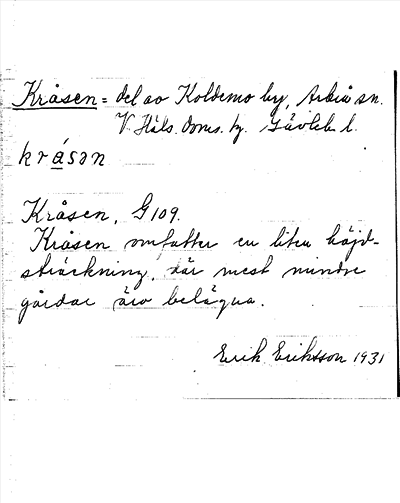 Kråsen = del av Koldemo by, Arbrå sn.
V. Häls. doms. hg. Gävleb. l.
kråsən
Kråsen, G 109.
Kråsen omfattar en liten höjd-
sträckning, där mest mindre
gårdar äro belägna.
Erik Eriksson 1931